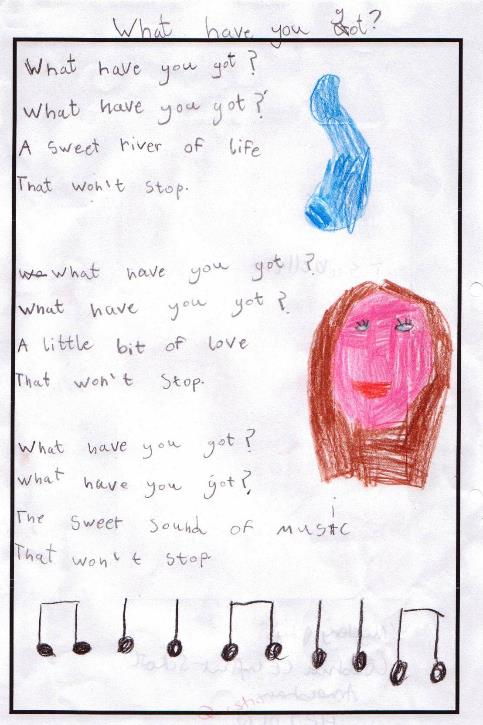 What have you got?
What have you got?
What have you got?
A sweet river of life
That won't stop.
What have you got?
What have you got?
A little bit of love
That won't stop.
What have you got?
What have you got?
The sweet sound of music
That won't stop